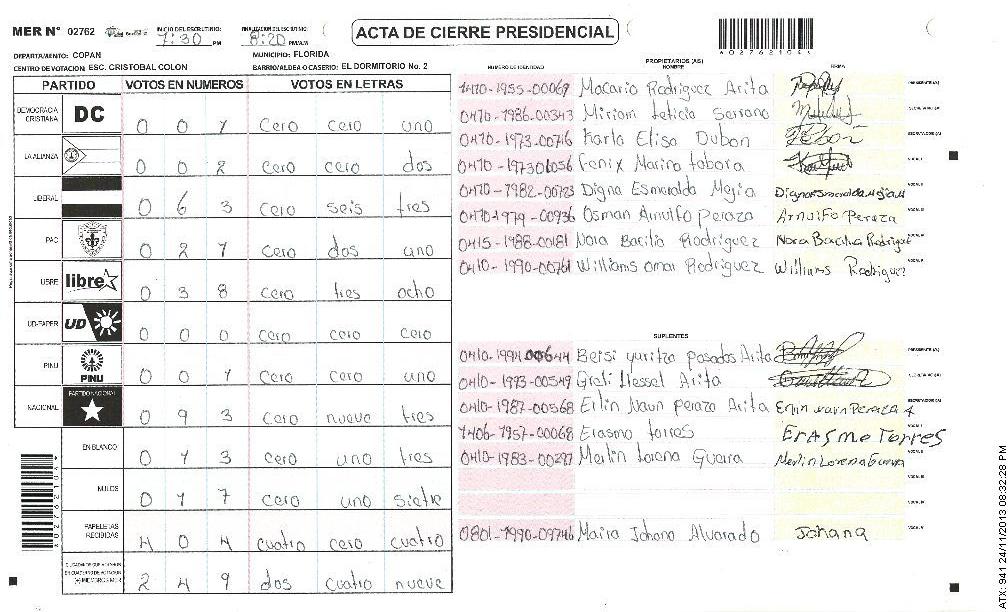 MER N° 02762 INICIO DEL ESCRUTINIO: 7:30 PM FINALIZACION DEL ESCRUTINIO: 8:20 PM/A.M ACTA DE CIERRE PRESIDENCIAL
0276210
DEPARTAMENTO: COPAN MUNICIPIO: FLORIDA
CENTRO DE VOTACION: ESC. CRISTOBAL COLON BARRIO/ALDEA O CASERIO: EL DORMITORIO No. 2
PARTIDO VOTOS EN NUMEROS VOTOS EN LETRAS
DEMOCRACIA CRISTIANA DC 0 0 1 cero cero uno
LA ALIANZA 0 0 2 cero cero dos
LIBERAL 0 6 3 cero seis tres
PAC 0 2 1 cero dos uno
LIBRE libre 0 3 8 cero tres ocho
UD-FAPER UD 0 0 0 cero cero cero
PINU PINU 0 0 1 cero cero uno
NACIONAL PARTIDO NACIONAL 0 9 3 cero nueve tres
EN BLANCO 0 1 3 cero uno tres
NULOS 0 1 7 cero uno siete
PAPELETAS RECIBIDAS 4 0 4 cuatro cero cuatro
CIUDADANOS QUE VOTARON EN CUADERNO DE VOTACION (+) MIEMBROS MER 2 4 9 dos cuatro nueve
PROPIETARIOS (AS)
NUMERO DE IDENTIDAD NOMBRE FIRMA
1410-1955-00069 Macario Rodriguez Arita PRESIDENTE (A)
0410-1986-00343 Miriam leticia Soriano SECRETARIO (A)
0410-1973-00716 Karla Elisa Dubon ESCRUTADOR (A)
0410-197301056 Fenix Marina tabora VOCAL I
0410-1982-00723 Digna Esmeralda Mejia Digna Esmeralda Mejia M VOCAL II
0410-1979-00936 Osman Arnulfo Peraza Arnulfo Peraza VOCAL III
0415-1988-00181 Nora Bacilia Rodriguez Nora Bacilia Rodriguez VOCAL IV
0410-1990-00761 Williams omar Rodriguez Williams Rodriguez VOCAL V
SUPLENTES
0410-1994-00644 Beisi yuritza posados Arita PRESIDENTE (A)
0410-1993-00549 Greti Hessel Arita SECRETARIO (A)
0410-1987-00568 Erlin Naun peraza Arita Erlin naun Peraza A ESCRUTADOR (A)
1406-1957-00068 Erasmo torres Erasmo Torres VOCAL I
0410-1983-00297 Merlin lorena Guerra Merlin Lorena Guerra VOCAL II
VOCAL III
VOCAL IV
0801-1990-09746 Maira Johana Alvarado Johana VOCAL V
ATX: 941 24/11/2013 08:32:28 PM